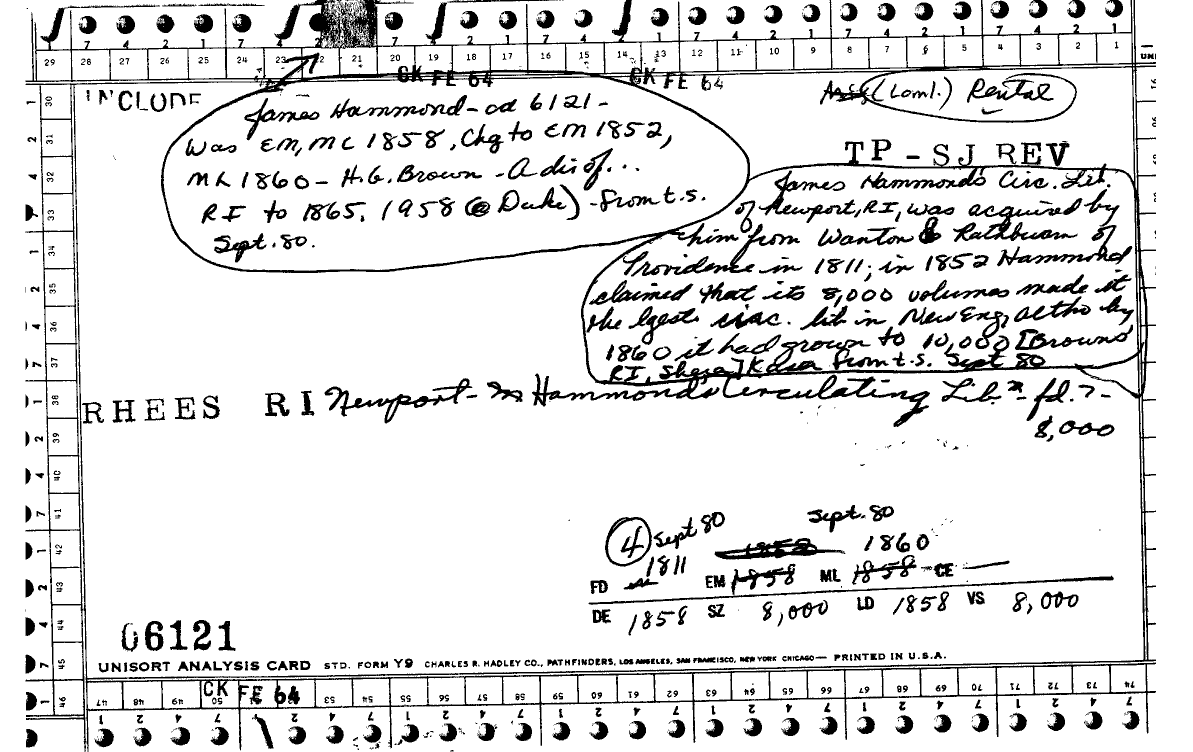 29 28 27 26 25 24 23 22 21 20 19 18 17 16 15 14 13 12 11 10 9 8 7 6 5 4 3 2 1
CK FE 64 CK FE 64
INCLUDE
(Coml.) Rental
James Hammond - cd 6121 -
Was EM, ML 1858, Chg to EM 1852,
ML 1860 - H.G. Brown - A dir of...
RI to 1865, 1958 (@ Duke) - from t.s.
Sept. 80.
TP - SJ REV
James Hammond's Circ. Lib.
of Newport, RI, was acquired by
him from Wanton & Rathbun of
Providence in 1811; in 1852 Hammond
claimed that its 8,000 volumes made it
the lgest circ. lib in New Eng, altho by
1860 it had grown to 10,000 [Browns'
RI, Shera] from t.s. Sept 80
RHEES RI Newport - Hammond's Circulating Lib. - fd. ? -
8,000
4 Sept 80 Sept. 80
1858 1860
FD 1811 EM 1858 ML 1858 CE —
DE 1858 SZ 8,000 LD 1858 VS 8,000
06121
UNISORT ANALYSIS CARD STD. FORM Y9 CHARLES R. HADLEY CO., PATHFINDERS, LOS ANGELES, SAN FRANCISCO, NEW YORK CHICAGO — PRINTED IN U.S.A.
CK FE 64
47 48 49 50 53 54 55 56 57 58 59 60 61 62 63 64 65 66 67 68 69 70 71 72 73 74